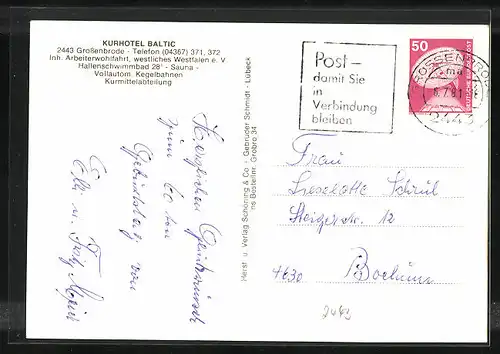 KURHOTEL BALTIC
2443 Großenbrode - Telefon (04367) 371, 372
Inh. Arbeiterwohlfahrt, westliches Westfalen e. V.
Hallenschwimmbad 28° - Sauna -
Vollautom. Kegelbahnen
Kurmittelabteilung
Herzlichen Glückwunsch
zum 60 ten
Geburtstag von
Elli u. Fritz
Herst. u. Verlag Schöning & Co. + Gebrüder Schmidt - Lübeck
ns Bestellnr. Grobro 34
Post –
damit Sie
in
Verbindung
bleiben
GROSSENBRODE
2443
50
DEUTSCHE BUNDESPOST
Frau
Lieselotte Schrül
Steigerstr. 12
4630 Bochum